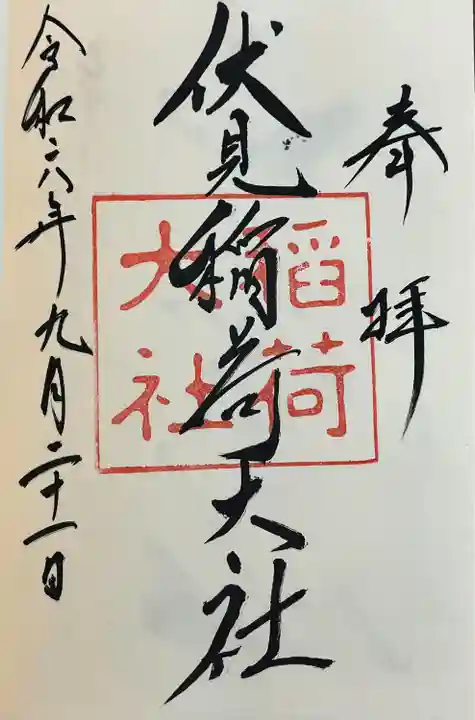 奉拝
伏見稲荷大社
稲荷
大社
令和六年九月二十一日